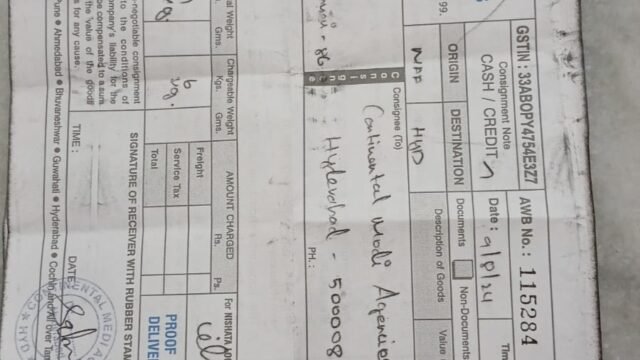 GSTIN : 33ABOPY4754E3Z7 AWB No. : 115284
Consignment Note
CASH / CREDIT Date : 9/8/24 Tim
ORIGIN DESTINATION Documents Non-Documents
HYD Description of Goods Value :
99.
Consignee (To)
Continental Medi Agencies
Hyderabad - 500008
PH. :
al Weight Chargeable Weight AMOUNT CHARGED
Gms. Kgs. Gms. Rs. Ps.
6 kg. Freight
Service Tax
Total
For NISHATA
PROOF
DELIVE
-negotiable consignment
to the conditions of
mpany's liability for the
be compensated to a sum
the value of the goods
s for any cause.
SIGNATURE OF RECEIVER WITH RUBBER STAM
TIME : DATE :
Pune ● Ahmedabad ● Bhuvaneshwar ● Guwahati ● Hyderabad ● Cochin and All over Tam
ENTAL MEDI
HYD